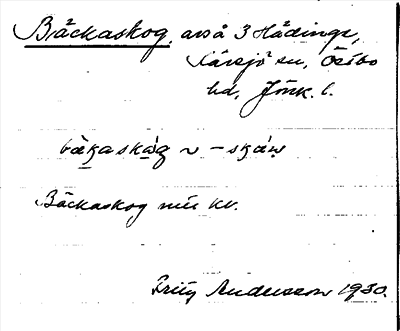 Bäckaskog, avs å 3 Hådinge,
Kärsjö sn, Östbo
hd, Jönk. l.
bäkaskåg ~ -skåw
Bäckaskog nu kv.
Fritz Andersson 1930.